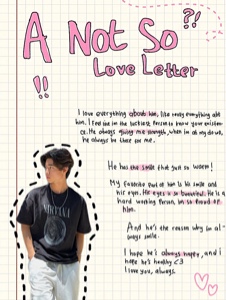 A Not So
?!
Love Letter
!!
I love everything about him, like truly everything abt
him. I feel like im the luckiest person to know your existen-
ce. He always giving me strength, when im at my down,
he always be there for me.
He has the smile that just so warm!
My favorite part of him is his smile and
his eyes. He eyes is so beautiful. He is a
hard working person, im so proud of
him.
And he's the reason why im al-
ways smile.
I hope he's always happy, and i
hope he's healthy <3
I love you, always.
NIRVANA